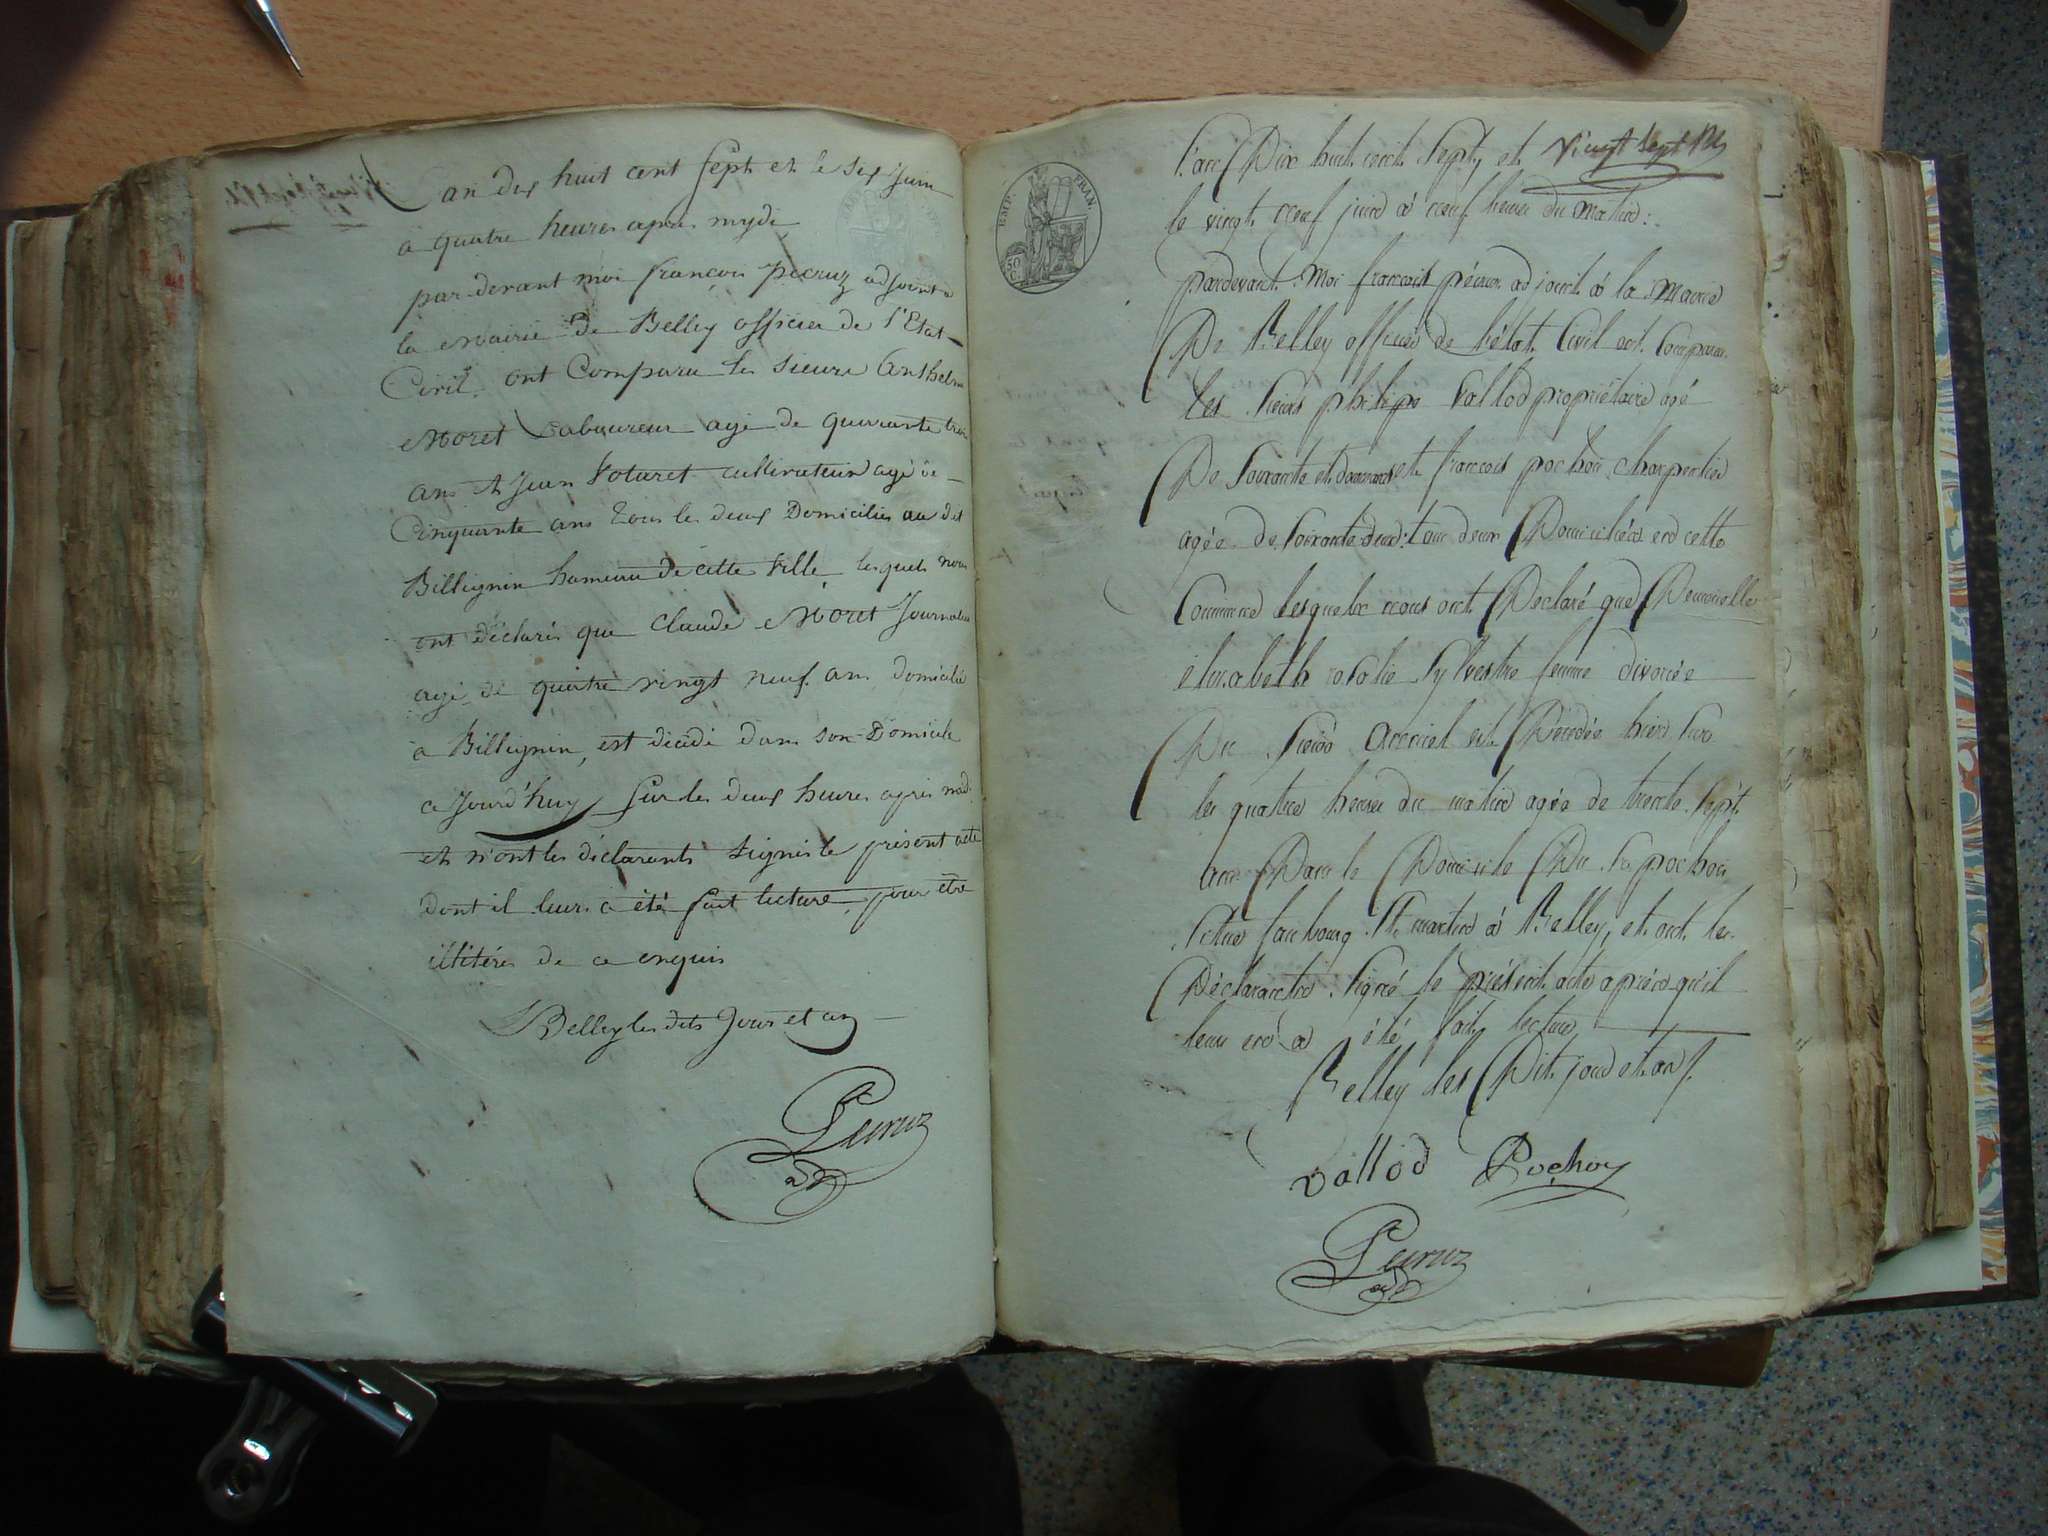 L'an dix huit cent sept et le six Juin
a quatre heures apres mydi
par devant moi françois Pecruz adjoint a
la Mairie de Belley officier de l'Etat
Civil. ont Comparu les sieurs Anthelme
Moret Laboureur agé de quarante trois
ans et Jean Voturet cultivateur agé de
Cinquante ans tous les deux Domiciliés au dit
Billignin hameau de cette Ville, lesquels nous
ont déclarés que Claude Moret Journalier
agé de quatre vingt neuf ans domicilié
a Billignin, est décédé dans son Domicile
ajourd'huy sur les deux heures apres midi
et n'ont les déclarants signés le présent acte
dont il leur a été fait lecture, pour être
illitérés de ce enquis
Belley les dits Jour et an
Pecruz
adj
EMP. FRAN.
50 C.
l'an Dix huit cent Sept, et
vingt Sept
le vingt neuf juin à neuf heures du matin :
pardevant Moi francois pécruz adjoint à la Mairie
De Belley officier de l'état Civil ont Comparu
les Sieurs philipe Vallod propriétaire agé
De Soixante et douzans et françois pochon charpentier
agée de soixante deux : tous deux Domiciliées en cette
Commune lesquelx nous ont Declaré que Demoiselle
elisabeth rosalie Sylvestre femme divorcée
Du Sieur est Décédée hier sur
les quatre heures du matin agée de trente Sept
ans Dans le Domicile Du Sr pochon
Situé faubourg St martin à Belley, et ont les
Déclarants Signé le présent acte après qu'il
leur en à été fait lecture
Belley les Dit jour et an
vallod Pochon
Pecruz
adj